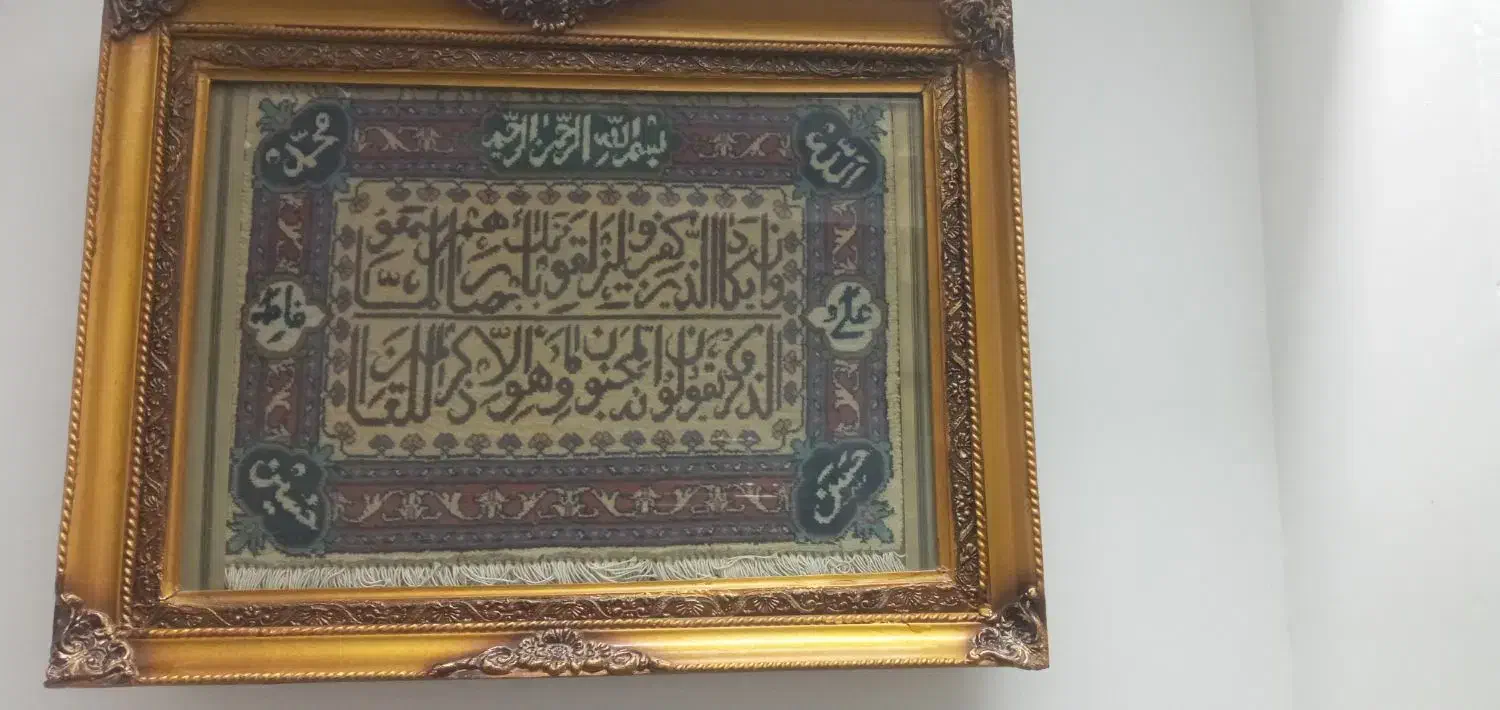 الله
بسم الله الرحمن الرحيم
محمد
وان يكاد الذين كفروا ليزلقونك بابصارهم لما سمعوا
الذكر ويقولون انه لمجنون وما هو الا ذكر للعالمين
علی
فاطمه
حسن
حسین